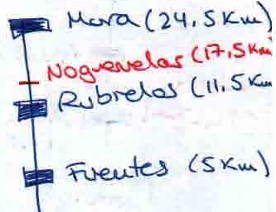 Mora (24,5 Km)
Noguevelas (17,5 Km
Rubielos (11,5 Km
Fuentes (5 Km)